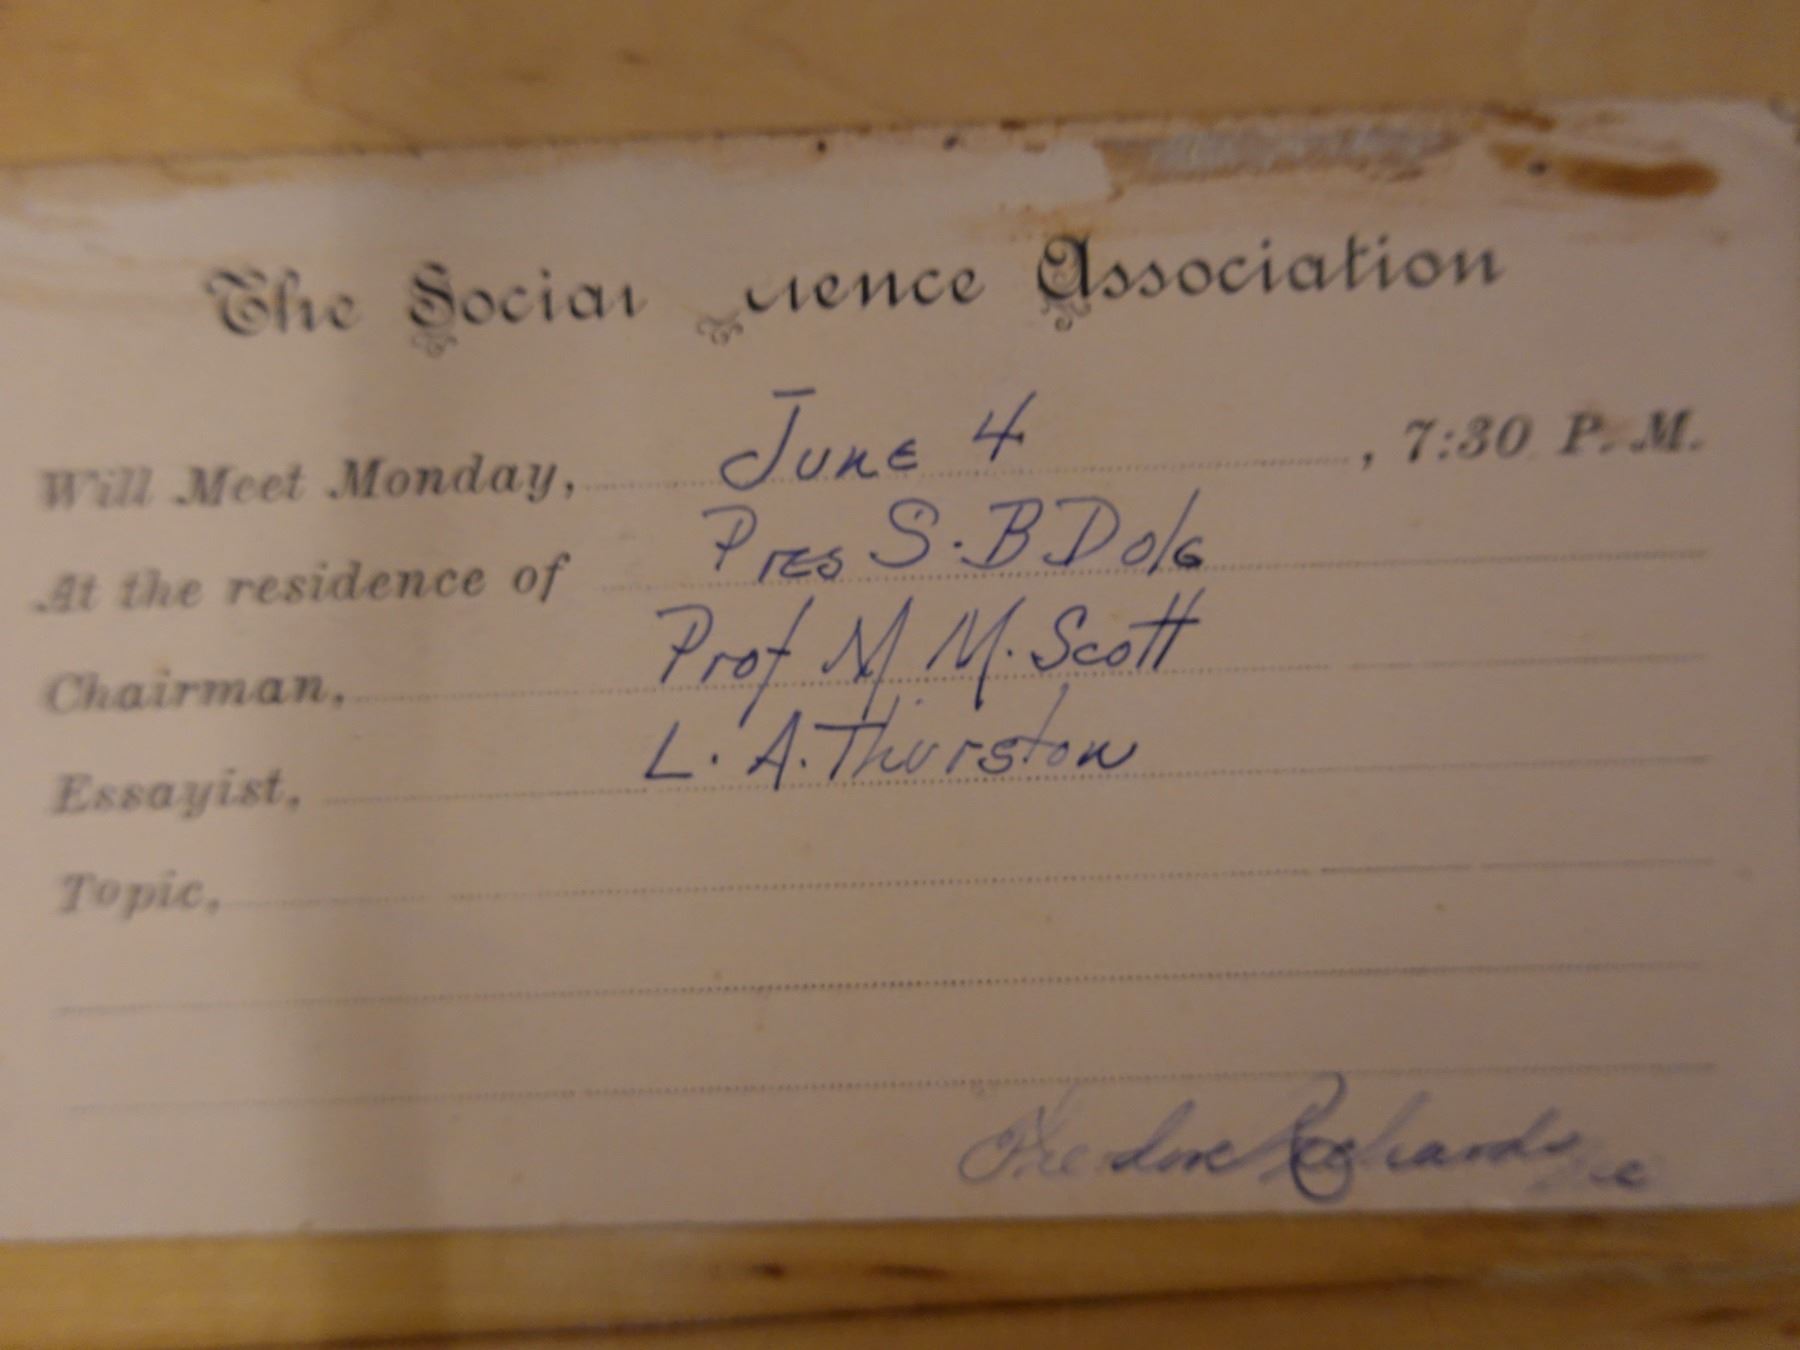 The Social Science Association
Will Meet Monday, June 4, 7:30 P. M.
At the residence of Pres S. B Dole
Chairman, Prof M. M. Scott
Essayist, L. A. Thurston
Topic,
Theodore Richards